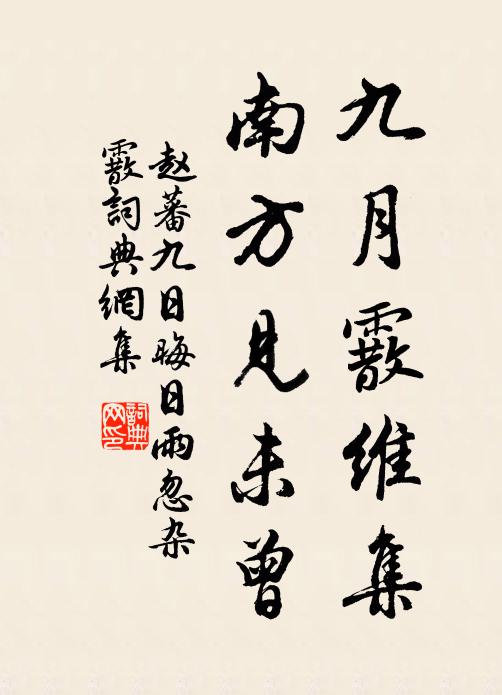 九月霰维集
南方見未曾
赵蕃九日晦日雨忽杂
霰詞典網集
詞典网印